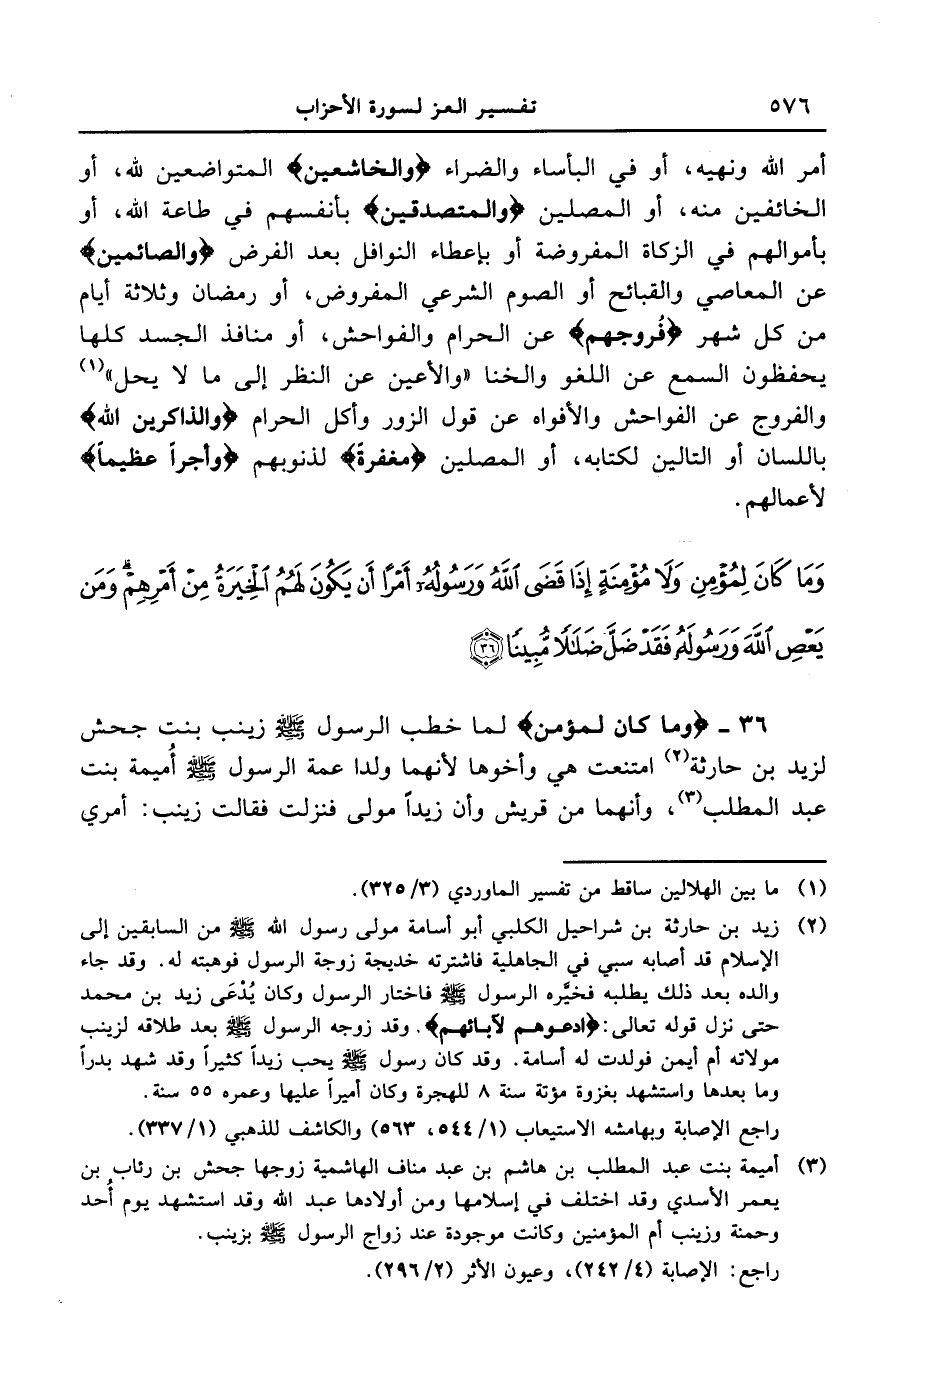 ٥٧٦
تفسير العز لسورة الأحزاب
أمر الله ونهيه، أو في البأساء والضراء ﴿والخاشعين﴾ المتواضعين لله، أو
الخائفين منه، أو المصلين ﴿والمتصدقين﴾ بأنفسهم في طاعة الله، أو
بأموالهم في الزكاة المفروضة أو بإعطاء النوافل بعد الفرض ﴿والصائمين﴾
عن المعاصي والقبائح أو الصوم الشرعي المفروض، أو رمضان وثلاثة أيام
من كل شهر ﴿فُروجهم﴾ عن الحرام والفواحش، أو منافذ الجسد كلها
يحفظون السمع عن اللغو والخنا «والأعين عن النظر إلى ما لا يحل»(١)
والفروج عن الفواحش والأفواه عن قول الزور وأكل الحرام ﴿والذاكرين الله﴾
باللسان أو التالين لكتابه، أو المصلين ﴿مغفرةً﴾ لذنوبهم ﴿وأجراً عظيماً﴾
لأعمالهم.
وَمَا كَانَ لِمُؤْمِنٍ وَلَا مُؤْمِنَةٍ إِذَا قَضَى ٱللَّهُ وَرَسُولُهُۥٓ أَمْرًا أَن يَكُونَ لَهُمُ ٱلْخِيَرَةُ مِنْ أَمْرِهِمْ ۗ وَمَن
يَعْصِ ٱللَّهَ وَرَسُولَهُۥ فَقَدْ ضَلَّ ضَلَٰلًا مُّبِينًا ﴿٣٦﴾
٣٦ ـ ﴿وما كان لمؤمن﴾ لما خطب الرسول ﷺ زينب بنت جحش
لزيد بن حارثة(٢) امتنعت هي وأخوها لأنهما ولدا عمة الرسول ﷺ أُميمة بنت
عبد المطلب(٣)، وأنهما من قريش وأن زيداً مولى فنزلت فقالت زينب: أمري
(١) ما بين الهلالين ساقط من تفسير الماوردي (٣/ ٣٢٥).
(٢) زيد بن حارثة بن شراحيل الكلبي أبو أسامة مولى رسول الله ﷺ من السابقين إلى
الإسلام قد أصابه سبي في الجاهلية فاشترته خديجة زوجة الرسول فوهبته له. وقد جاء
والده بعد ذلك يطلبه فخيَّره الرسول ﷺ فاختار الرسول وكان يُدْعَى زيد بن محمد
حتى نزل قوله تعالى: ﴿ادعوهم لآبائهم﴾. وقد زوجه الرسول ﷺ بعد طلاقه لزينب
مولاته أم أيمن فولدت له أسامة. وقد كان رسول ﷺ يحب زيداً كثيراً وقد شهد بدراً
وما بعدها واستشهد بغزوة مؤتة سنة ٨ للهجرة وكان أميراً عليها وعمره ٥٥ سنة.
راجع الإصابة وبهامشه الاستيعاب (١/ ٥٤٤، ٥٦٣) والكاشف للذهبي (١/ ٣٣٧).
(٣) أميمة بنت عبد المطلب بن هاشم بن عبد مناف الهاشمية زوجها جحش بن رئاب بن
يعمر الأسدي وقد اختلف في إسلامها ومن أولادها عبد الله وقد استشهد يوم أُحد
وحمنة وزينب أم المؤمنين وكانت موجودة عند زواج الرسول ﷺ بزينب.
راجع: الإصابة (٤/ ٢٤٢)، وعيون الأثر (٢/ ٢٩٦).